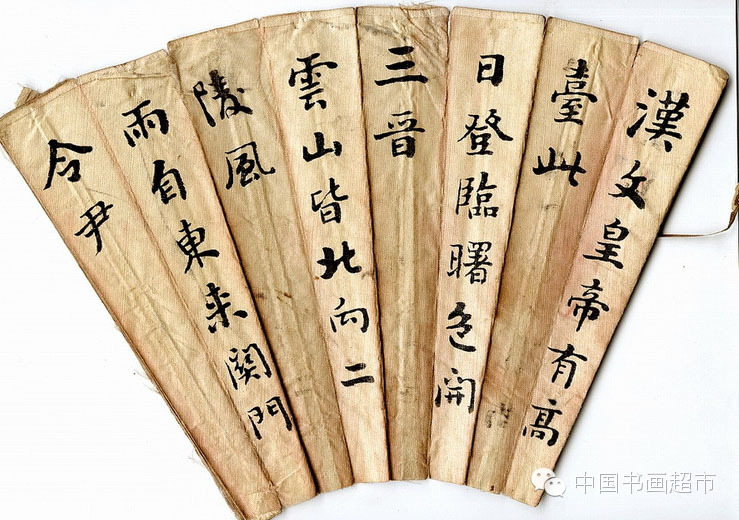 漢文皇帝有高
臺此
日登臨曙色開
三晉
雲山皆北向二
陵風
雨自東来關門
令尹
中国书画超市